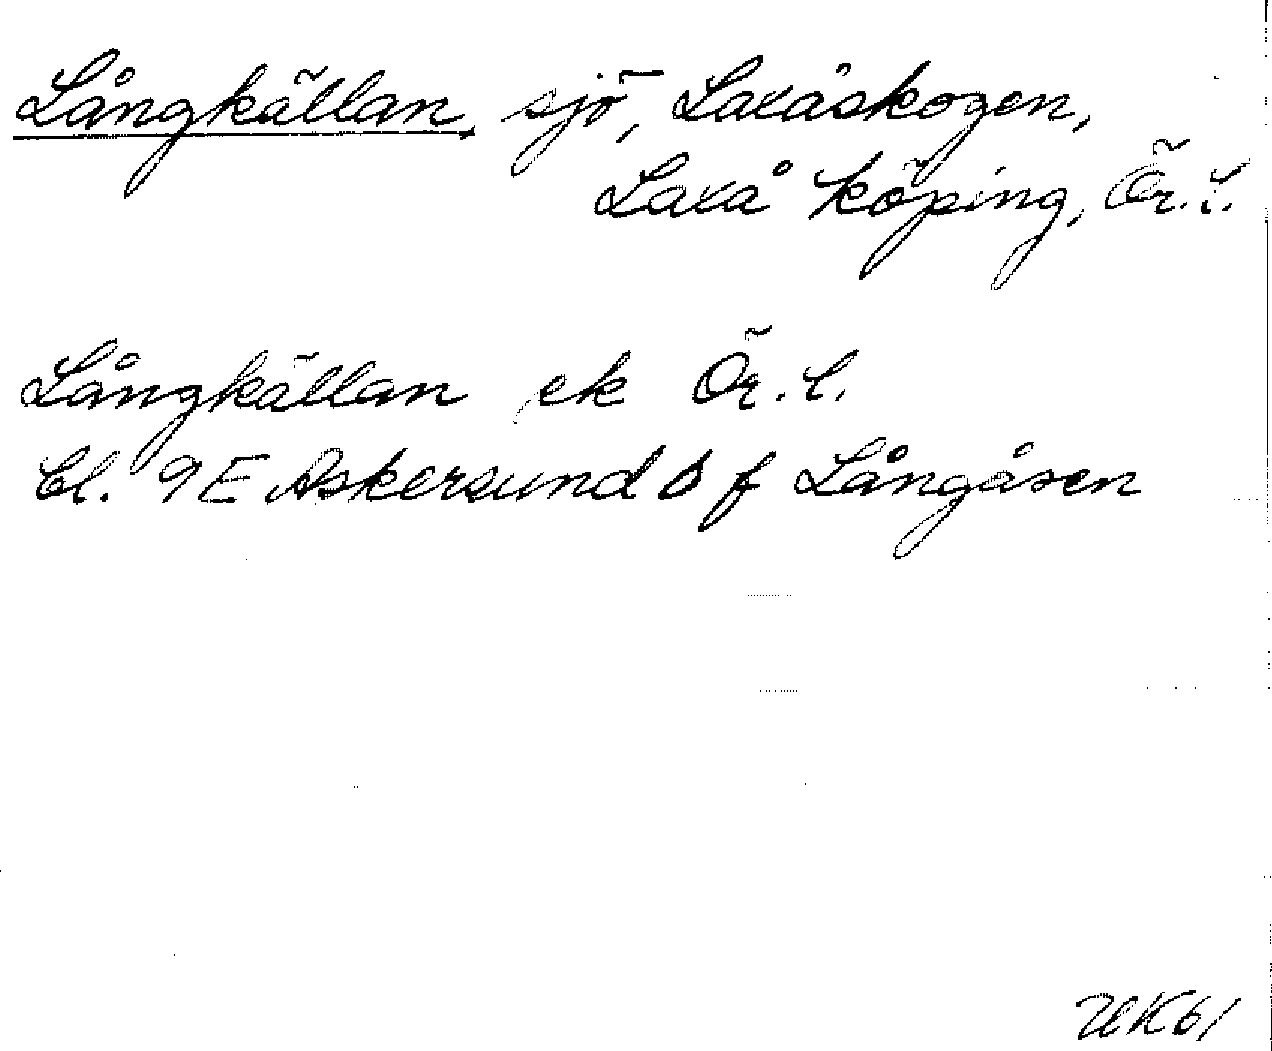 Långkällan, sjö, Laxåskogen,
Laxå köping, Ör. l.
Långkällan ek Ör. l.
Bl. 9E Askersund b f Långåsen
UK61